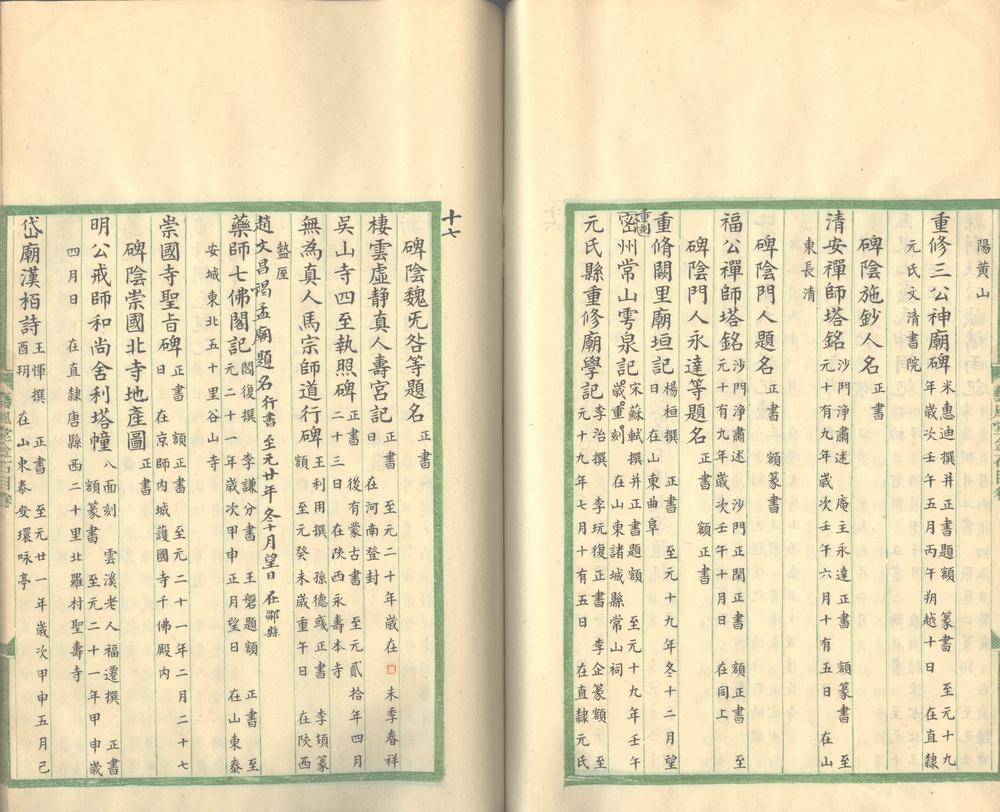 陽黃山
重修三公神廟碑 米惠迪撰并正書 篆書 至元十九
年歲次壬午五月丙午朔越十日 在直隸
元氏文清書院
碑陰施鈔人名 正書
清安禪師塔銘 沙門淨肅述 庵主永達正書 額篆書 至
元十有九年歲次壬午六月十有五日 在山
東長清
碑陰門人題名 正書 額篆書
福公禪師塔銘 沙門淨肅述 沙門正閑正書 額正書 至
元十有九年歲次壬午十月日 在同上
碑陰門人永達等題名 正書 額正書
重脩闕里廟垣記 楊桓撰 正書 至元十九年冬十二月望
日 在山東曲阜
重刻
密州常山雩泉記 宋蘇軾撰并正書題額 至元十九年壬午
歲重刻 在山東諸城縣常山祠
元氏縣重修廟學記 李治撰 李玩復正書 李企篆額 至
元十九年七月十有五日 在直隸元氏
十七
碑陰魏旡咎等題名 正書
棲雲虛静真人壽宮記 正書 至元二十年歲在□未季春祥
日 在河南登封
吳山寺四至執照碑 正書 後有蒙古書 至元貳拾年四月
二十三日 在陝西永壽本寺
無為真人馬宗師道行碑 王利用撰 孫德彧正書 李頍篆
額 至元癸未歲重午日 在陝西
盩厔
趙文昌謁孟廟題名 行書 至元廿年冬十月望日 在鄒縣
藥師七佛閣記 閻復撰 李謙分書 王磐題額 正書 至
元二十一年歲次甲申正月望日 在山東泰
安城東北五十里谷山寺
崇國寺聖旨碑 正書 額正書 至元二十一年二月二十七
日 在京師內城護國寺千佛殿內
碑陰崇國北寺地產圖 正書
明公戒師和尚舍利塔幢 八面刻 雲溪老人福遷撰 正書
額篆書 至元二十一年甲申歲
四月日 在直隸唐縣西二十里北羅村聖壽寺
岱廟漢栢詩 王惲撰 正書 至元廿一年歲次甲申五月己
酉玥 在山東泰安環咏亭